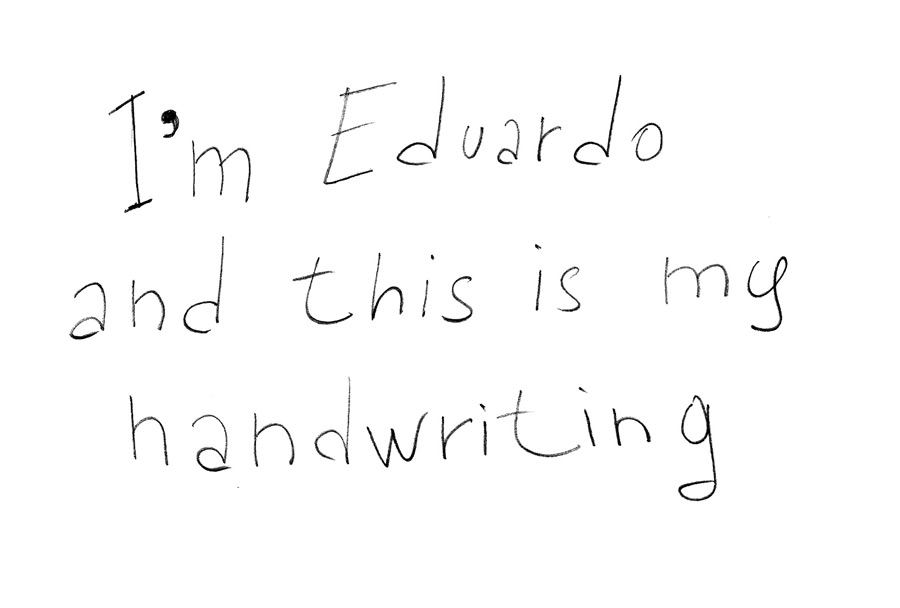 I'm Eduardo
and this is my
handwriting